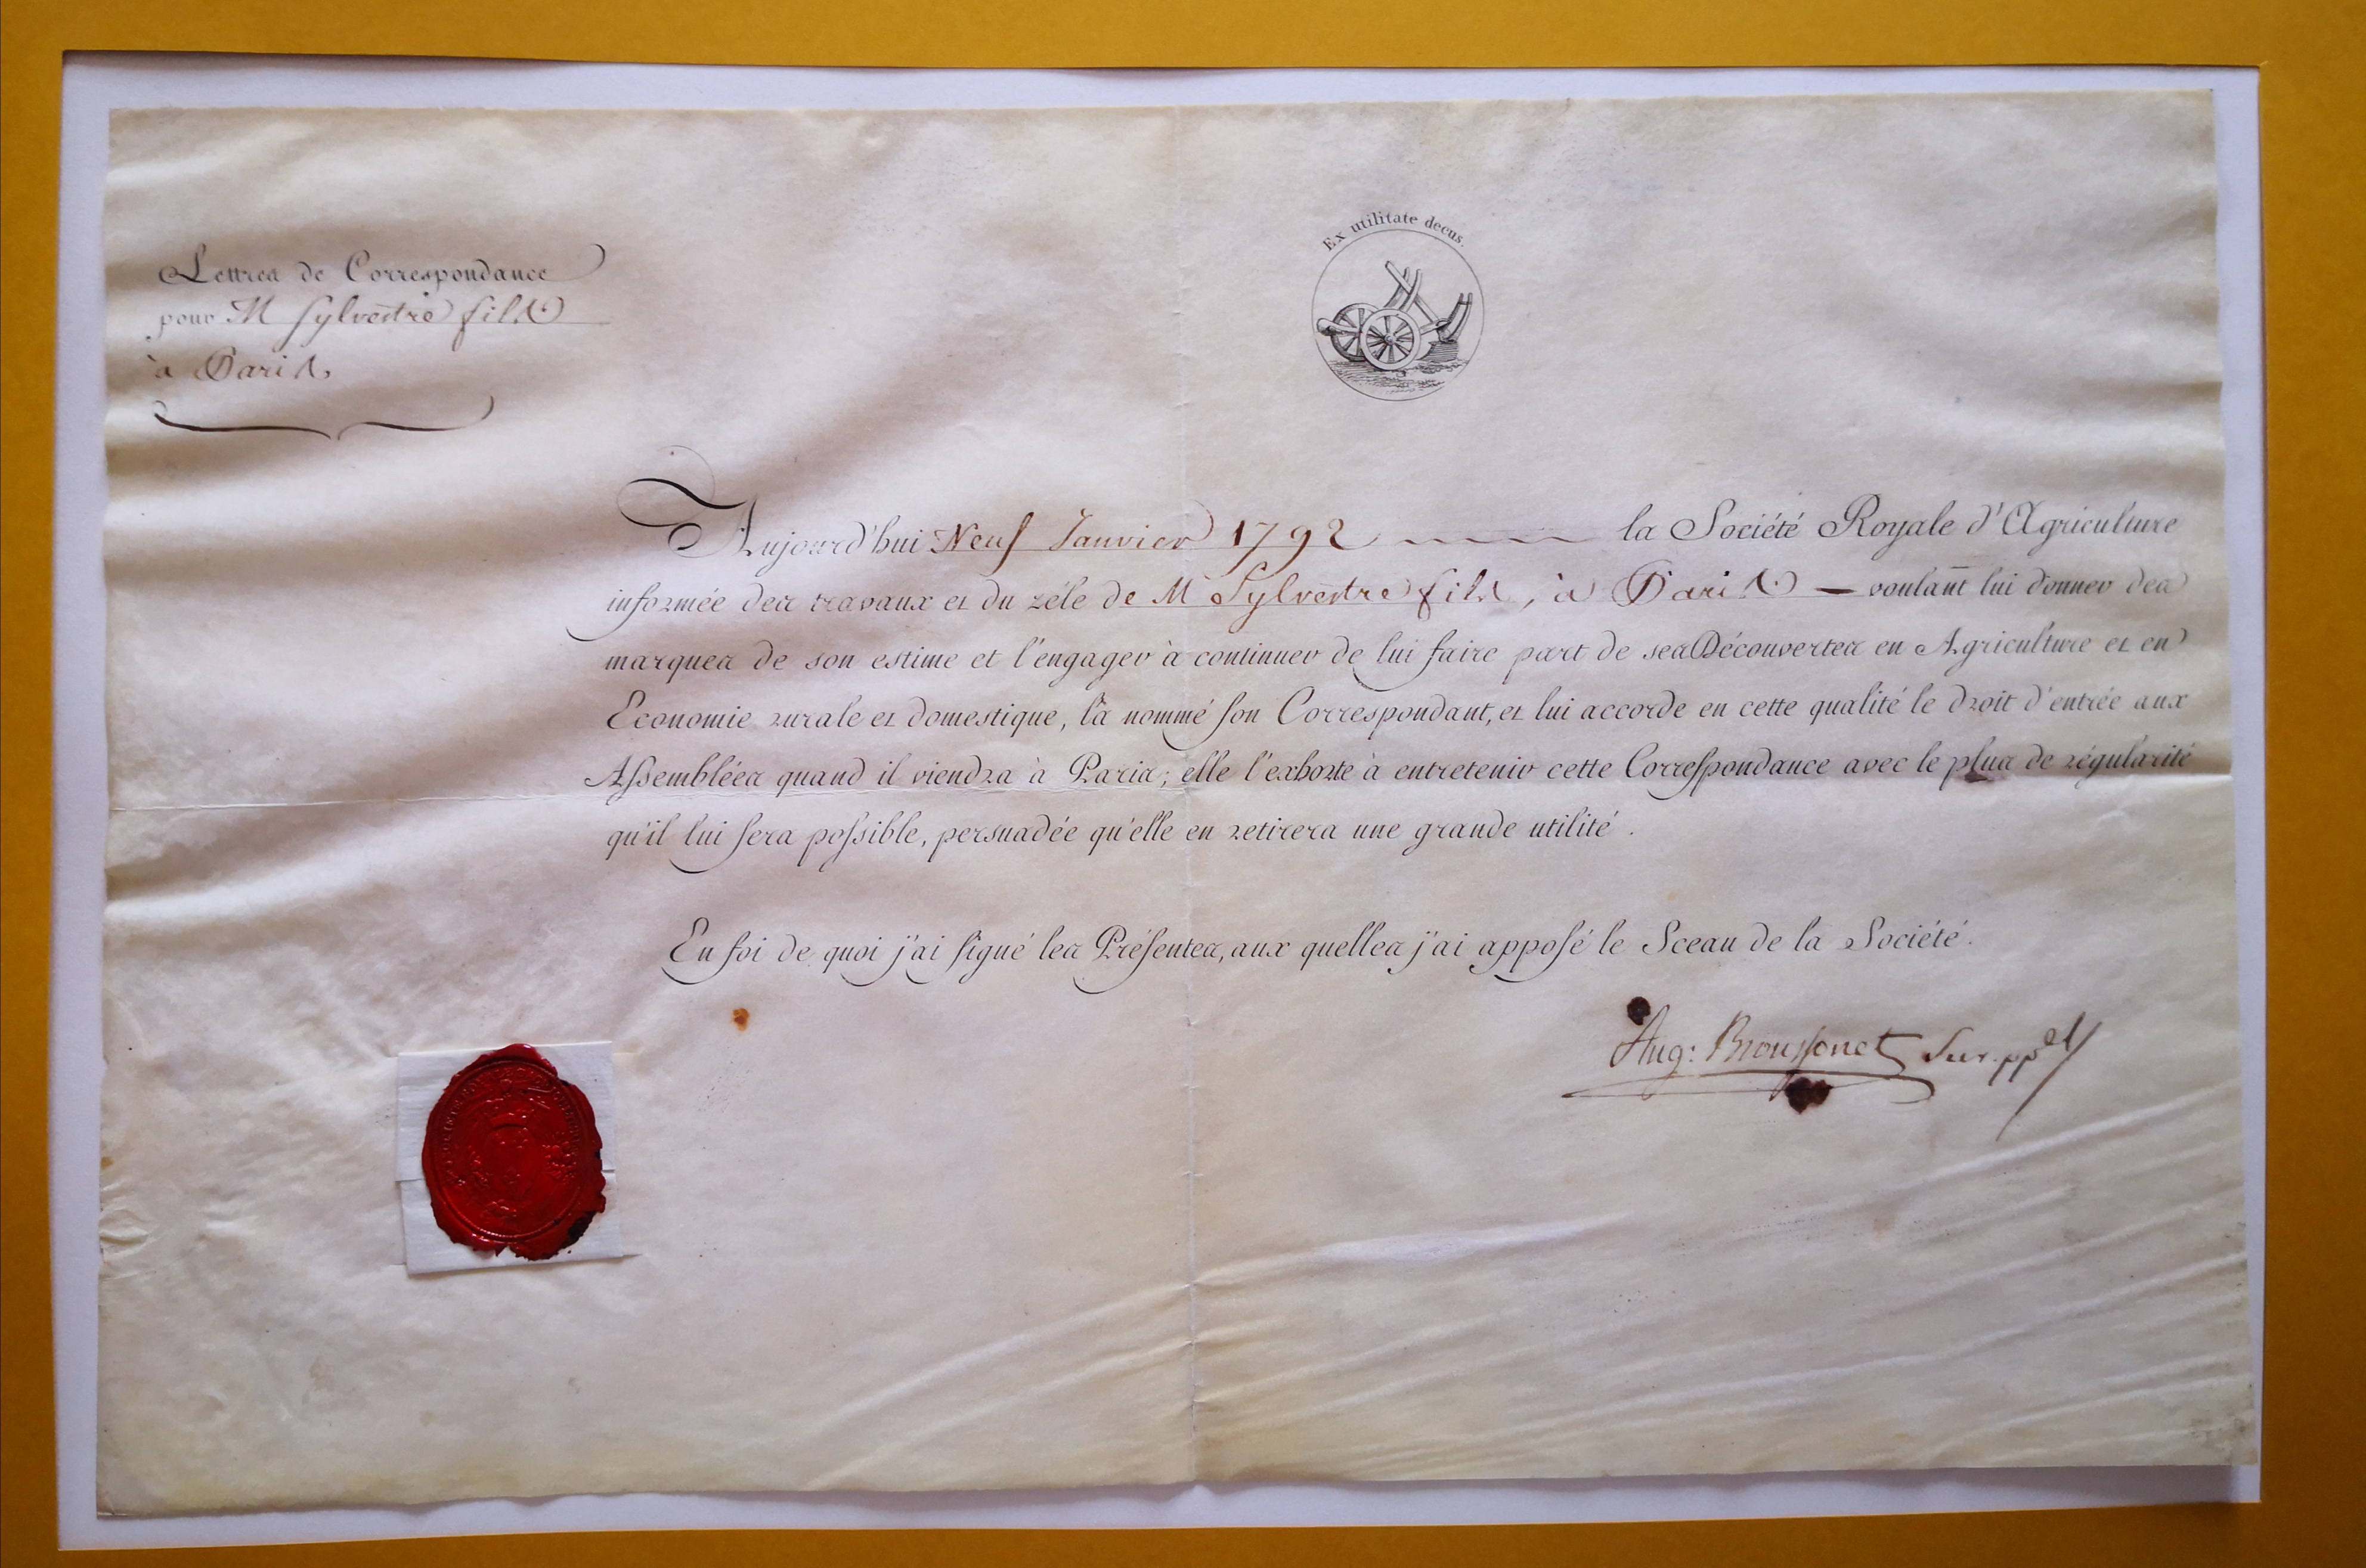 Ex utilitate decus.
Lettres de Correspondance
pour M Sylvestre fils
à Paris,
Aujourd'hui Neuf Janvier 1792 la Société Royale d'Agriculture
informée des travaux et du zéle de M Sylvestre fils, à Paris — voulant lui donner des
marques de son estime et l'engager à continuer de lui faire part de ses Découvertes en Agriculture et en
Economie rurale et domestique, l'a nommé son Correspondant, et lui accorde en cette qualité le droit d'entrée aux
Assemblées quand il viendra à Paris; elle l'exhorte à entretenir cette Correspondance avec le plus de régularité
qu'il lui sera possible, persuadée qu'elle en retirera une grande utilité.
En foi de quoi j'ai signé les Présentes, aux quelles j'ai apposé le Sceau de la Société.
Aug: Broussonet